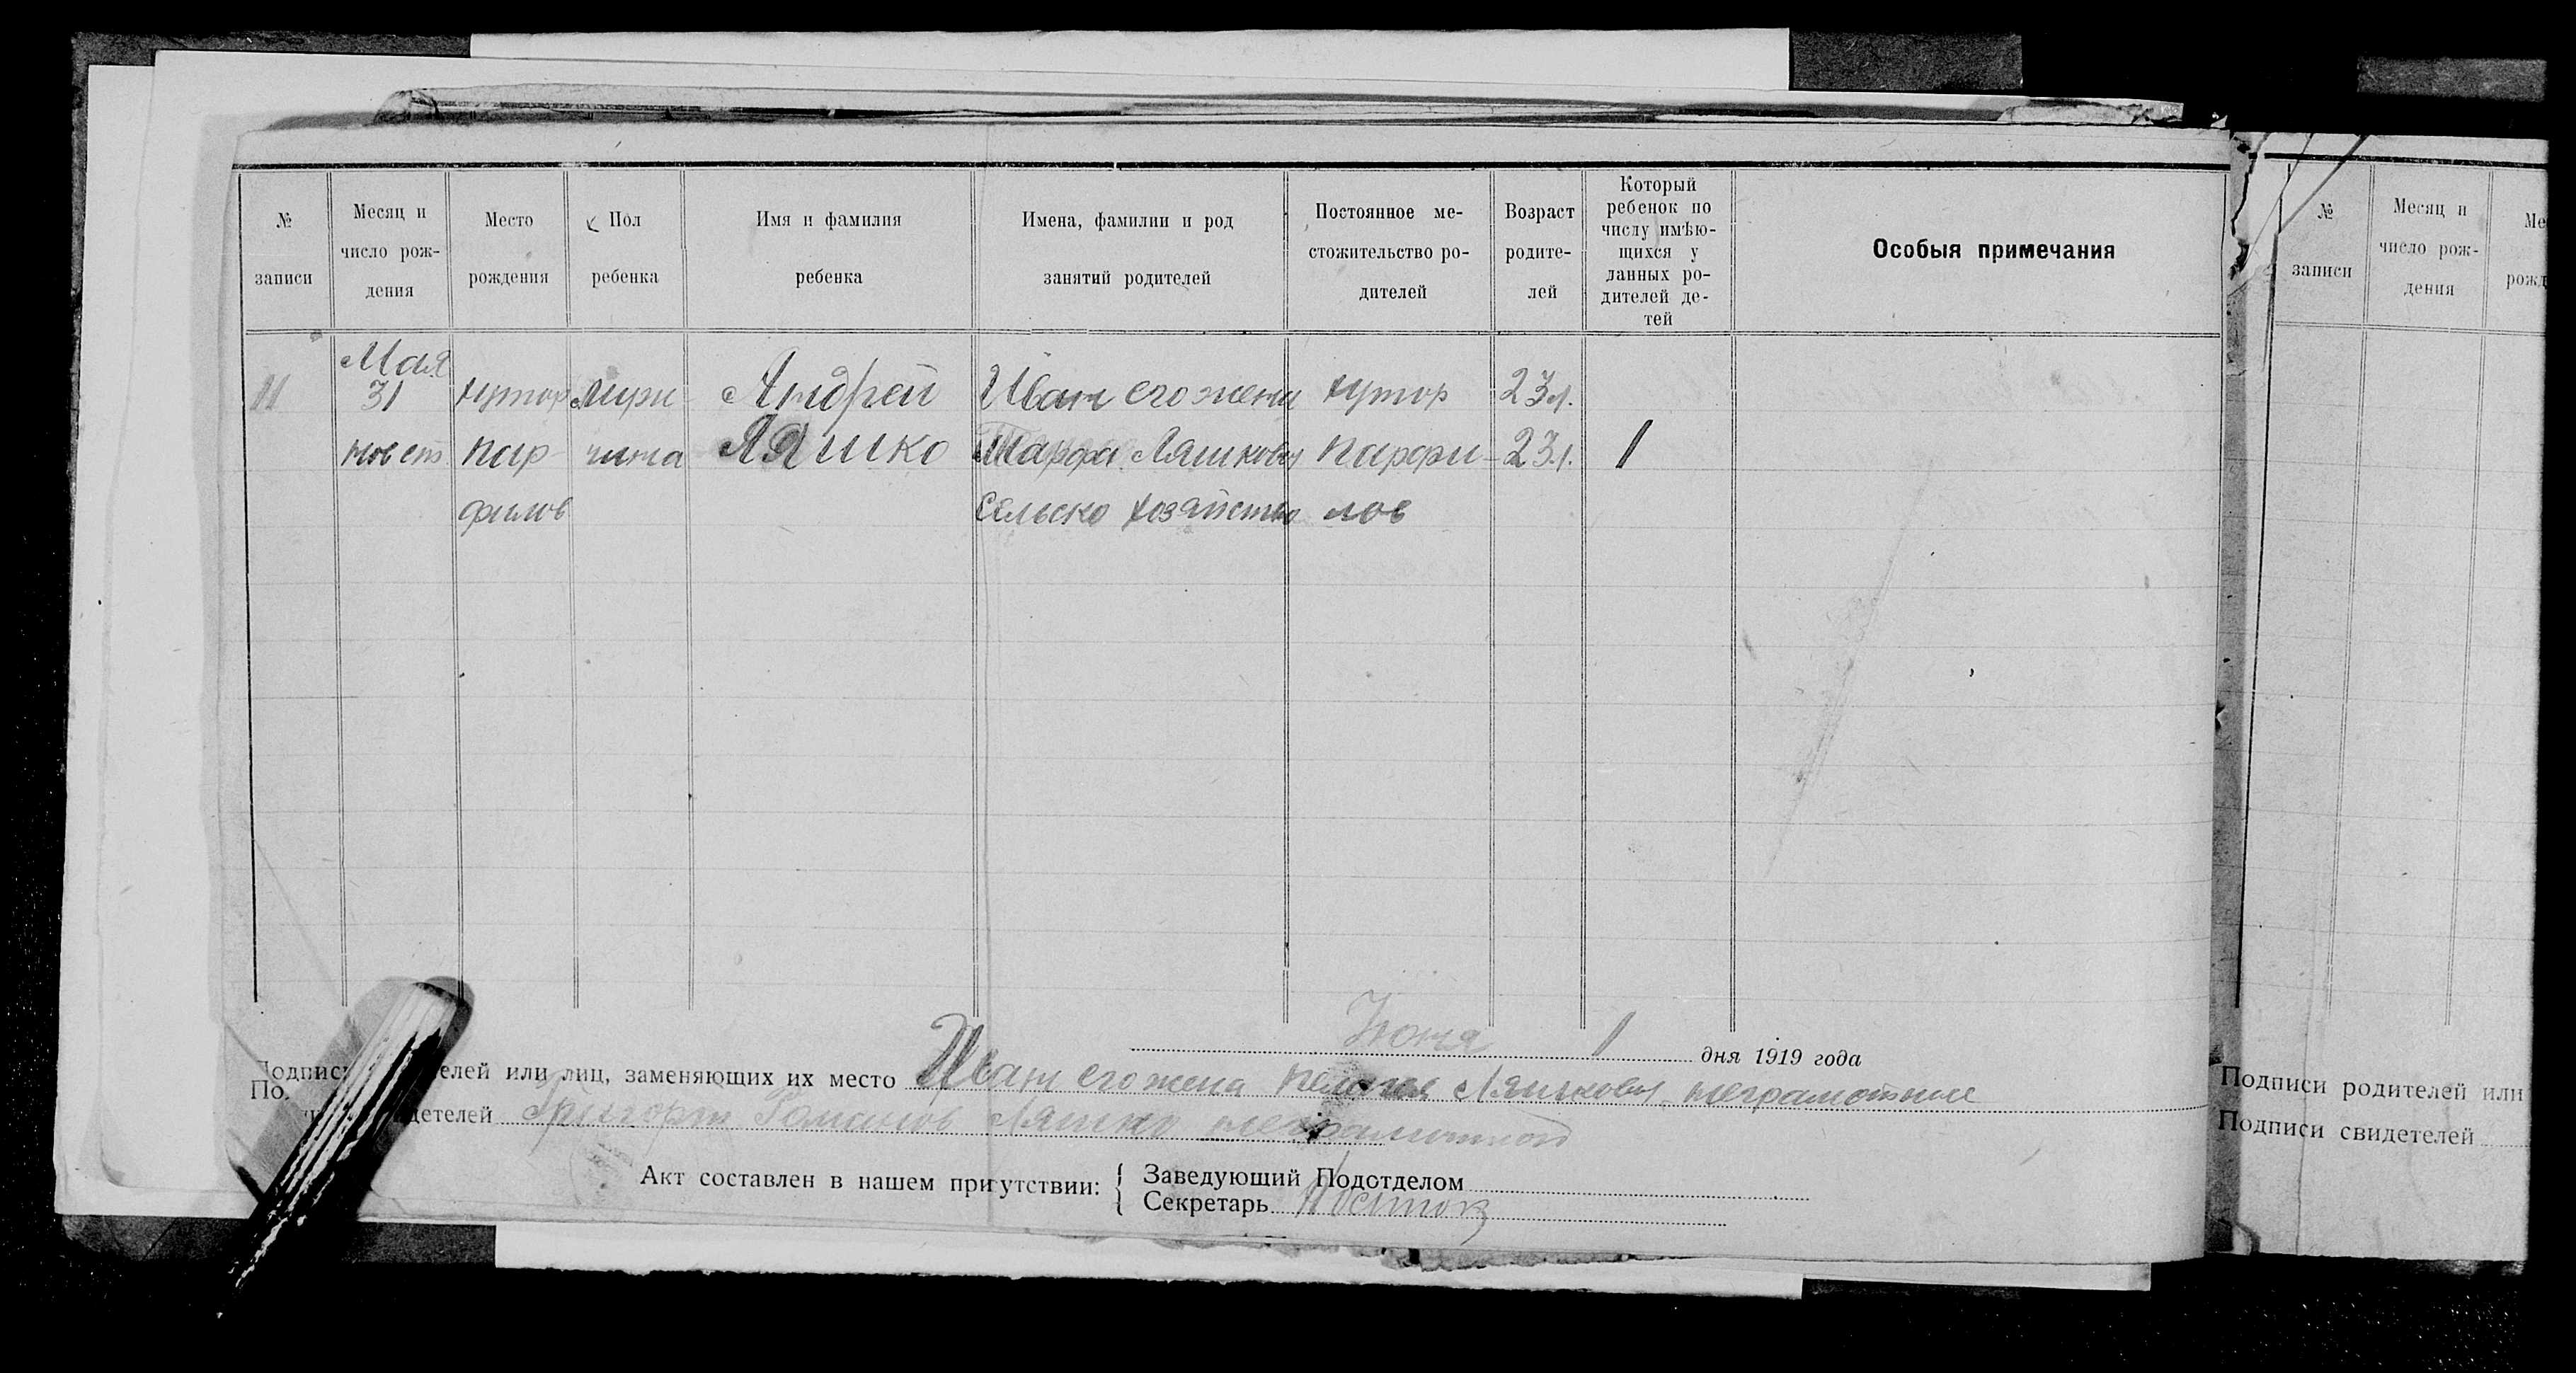 № записи
Месяц и число рождения
Место рождения
Пол ребенка
Имя и фамилия ребенка
Имена, фамилии и род занятий родителей
Постоянное ме-
стожительство ро-
дителей
Возраст
родите-
лей
Который
ребенок по
числу имѣю-
щихся у
данных ро-
дителей де-
тей
Особыя примечания
11 Мая 31 хутор мущи Андрей Иван его жена хутор 23 л.
нов ст пар чина Ляшко Марфа Ляшковы Парфи- 23 л. 1
филов Сельско хозяйство лов
Июня 1 дня 1919 года
Подписи елей или лиц, заменяющих их место Иван его жена Пелагея Ляшковы неграмотные
детелей Григорий Романов Ляшко неграмотной
Акт составлен в нашем присутствии:
Заведующий Подотделом
Секретарь
№ записи
Месяц и
число рож-
дения
Ме
рожд
Подписи родителей или
Подписи свидетелей